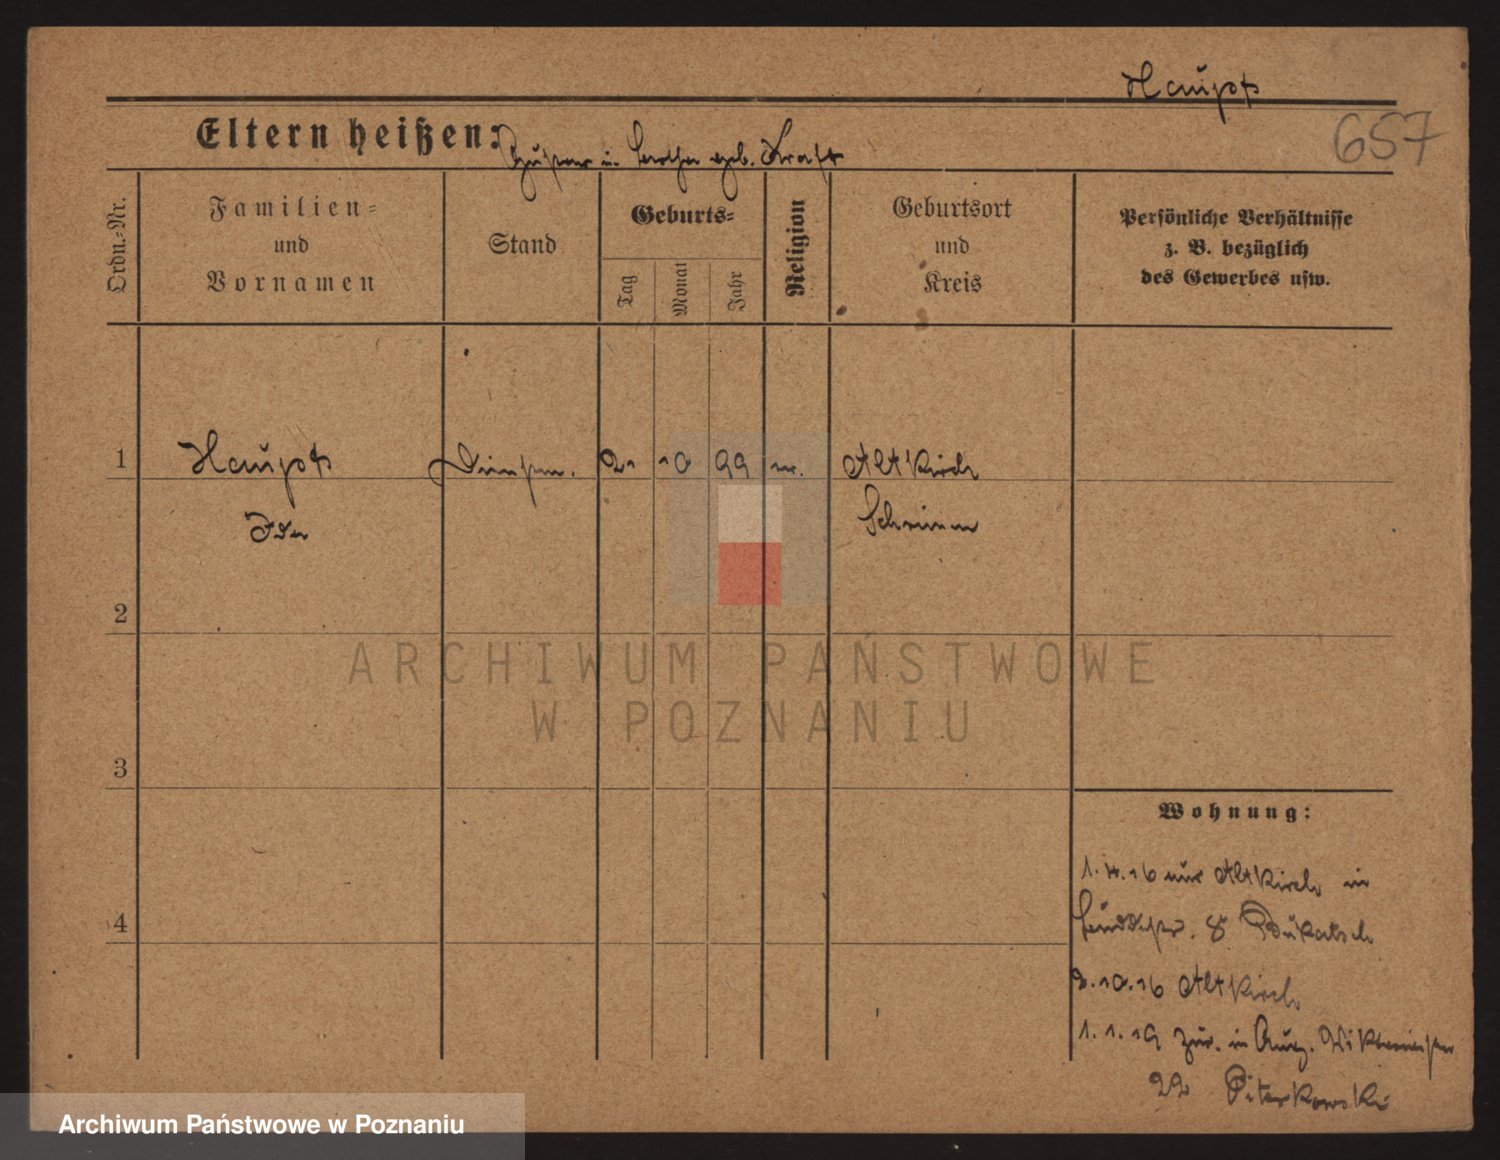 Haupt
657
Eltern heißen: Gustav u. Bertha geb. Kraft
Ordn.-Nr.
Familien-
und
Vornamen
Stand
Geburts-
Tag
Monat
Jahr
Religion
Geburtsort
und
Kreis
Persönliche Verhältnisse
z. B. bezüglich
des Gewerbes usw.
1
Haupt
Ida
21 10 99
Altkirch
Schrimm
2
ARCHIWUM PAŃSTWOWE
W POZNANIU
3
Wohnung:
1.4.16 aus Altkirch in
8 Dukatsch
4
2.10.16 Altkirch
1.1.19 zur. in
22 Piterkowski
Archiwum Państwowe w Poznaniu